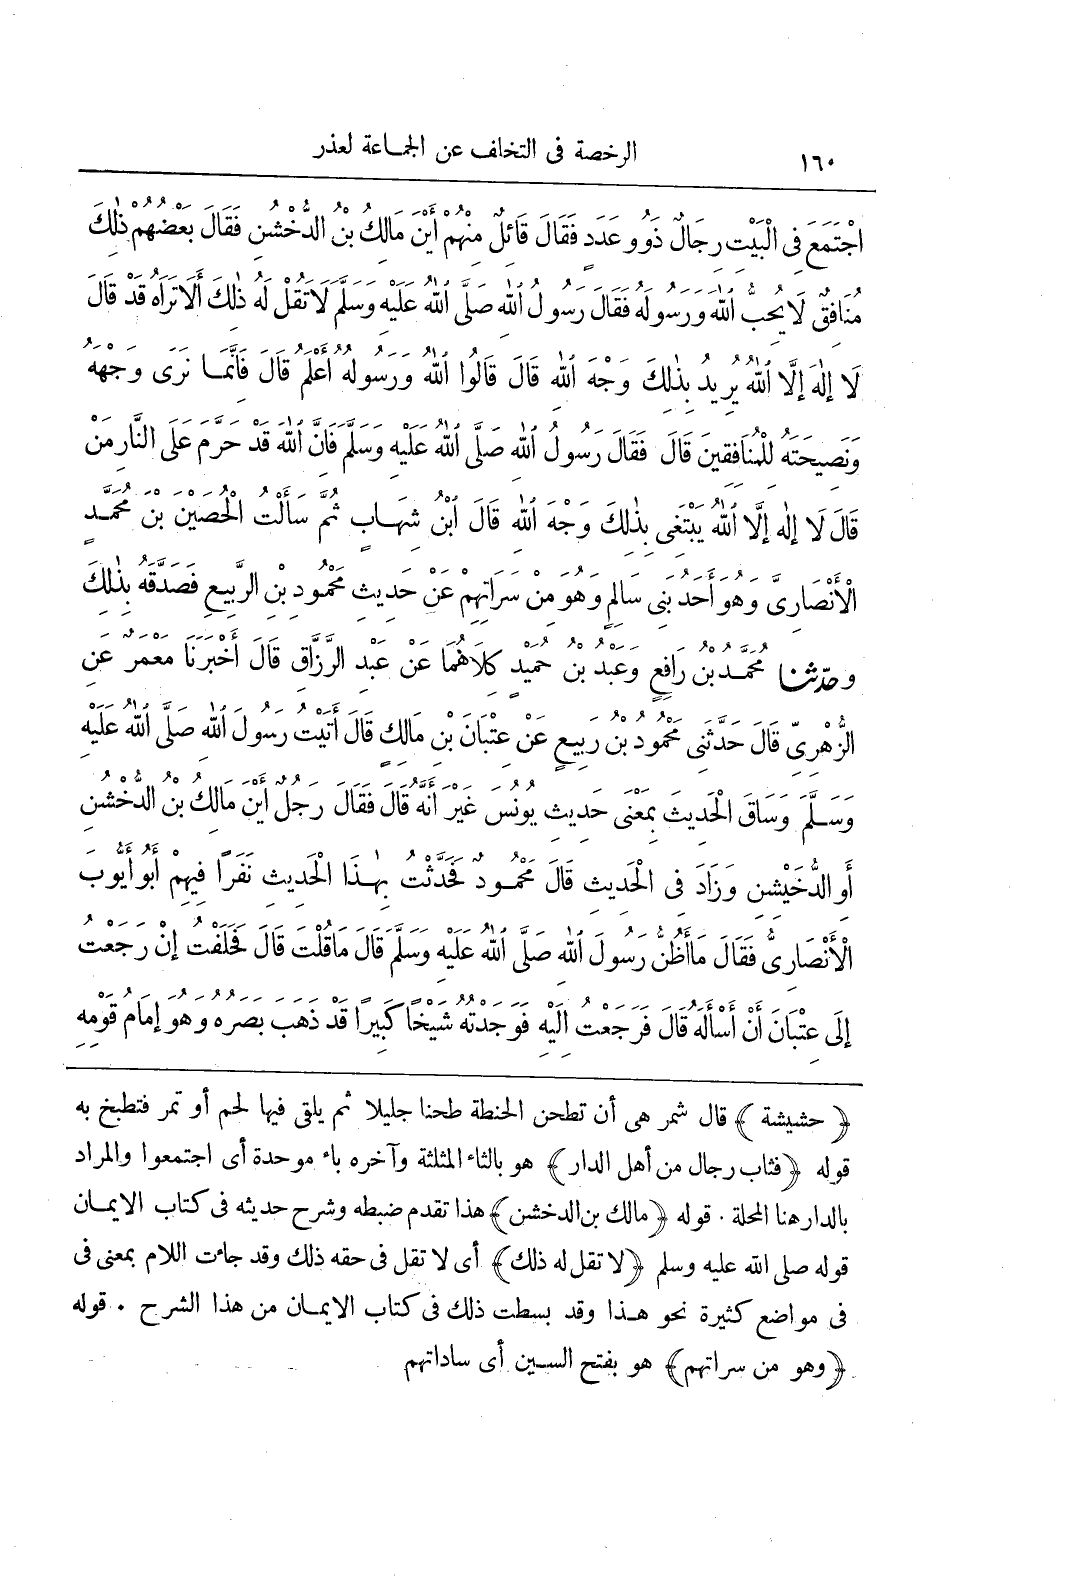 ١٦٠ الرخصة فى التخلف عن الجماعة لعذر
اجْتَمَعَ فِى الْبَيْتِ رِجَالٌ ذَوُو عَدَدٍ فَقَالَ قَائِلٌ مِنْهُمْ أَيْنَ مَالِكُ بْنُ الدُّخْشُنِ فَقَالَ بَعْضُهُمْ ذٰلِكَ
مُنَافِقٌ لَا يُحِبُّ اللّٰهَ وَرَسُولَهُ فَقَالَ رَسُولُ اللّٰهِ صَلَّى اللّٰهُ عَلَيْهِ وَسَلَّمَ لَا تَقُلْ لَهُ ذٰلِكَ أَلَا تَرَاهُ قَدْ قَالَ
لَا إِلٰهَ إِلَّا اللّٰهُ يُرِيدُ بِذٰلِكَ وَجْهَ اللّٰهِ قَالَ قَالُوا اللّٰهُ وَرَسُولُهُ أَعْلَمُ قَالَ فَانَّمَا نَرَى وَجْهَهُ
وَنَصِيحَتَهُ لِلْمُنَافِقِينَ قَالَ فَقَالَ رَسُولُ اللّٰهِ صَلَّى اللّٰهُ عَلَيْهِ وَسَلَّمَ فَانَّ اللّٰهَ قَدْ حَرَّمَ عَلَى النَّارِ مَنْ
قَالَ لَا إِلٰهَ إِلَّا اللّٰهُ يَبْتَغِى بِذٰلِكَ وَجْهَ اللّٰهِ قَالَ ابْنُ شِهَابٍ ثُمَّ سَأَلْتُ الْحُصَيْنَ بْنَ مُحَمَّدٍ
الْأَنْصَارِىَّ وَهُوَ أَحَدُ بَنِى سَالِمٍ وَهُوَ مِنْ سَرَاتِهِمْ عَنْ حَدِيثِ مَحْمُودِ بْنِ الرَّبِيعِ فَصَدَّقَهُ بِذٰلِكَ
وحدثنا مُحَمَّدُ بْنُ رَافِعٍ وَعَبْدُ بْنُ حُمَيْدٍ كِلَاهُمَا عَنْ عَبْدِ الرَّزَّاقِ قَالَ أَخْبَرَنَا مَعْمَرٌ عَنِ
الزُّهْرِىِّ قَالَ حَدَّثَنِى مَحْمُودُ بْنُ رَبِيعٍ عَنْ عِتْبَانَ بْنِ مَالِكٍ قَالَ أَتَيْتُ رَسُولَ اللّٰهِ صَلَّى اللّٰهُ عَلَيْهِ
وَسَلَّمَ وَسَاقَ الْحَدِيثَ بِمَعْنَى حَدِيثِ يُونُسَ غَيْرَ أَنَّهُ قَالَ فَقَالَ رَجُلٌ أَيْنَ مَالِكُ بْنُ الدُّخْشُنِ
أَوِ الدُّخَيْشِنِ وَزَادَ فِى الْحَدِيثِ قَالَ مَحْمُودٌ فَحَدَّثْتُ بِهٰذَا الْحَدِيثِ نَفَرًا فِيهِمْ أَبُو أَيُّوبَ
الْأَنْصَارِىُّ فَقَالَ مَا أَظُنُّ رَسُولَ اللّٰهِ صَلَّى اللّٰهُ عَلَيْهِ وَسَلَّمَ قَالَ مَاقُلْتَ قَالَ فَحَلَفْتُ إِنْ رَجَعْتُ
إِلَى عِتْبَانَ أَنْ أَسْأَلَهُ قَالَ فَرَجَعْتُ الَيْهِ فَوَجَدْتُهُ شَيْخًا كَبِيرًا قَدْ ذَهَبَ بَصَرُهُ وَهُوَ إِمَامُ قَوْمِهِ
﴿حشيشة﴾ قال شمر هى أن تطحن الحنطة طحنا جليلا ثم يلقى فيها لحم أو تمر فتطبخ به
قوله ﴿فثاب رجال من أهل الدار﴾ هو بالثاء المثلثة وآخره باء موحدة أى اجتمعوا والمراد
بالدار هنا المحلة . قوله ﴿مالك بن الدخشن﴾ هذا تقدم ضبطه وشرح حديثه فى كتاب الايمان
قوله صلى الله عليه وسلم ﴿لا تقل له ذلك﴾ أى لا تقل فى حقه ذلك وقد جاءت اللام بمعنى فى
فى مواضع كثيرة نحو هذا وقد بسطت ذلك فى كتاب الايمان من هذا الشرح . قوله
﴿وهو من سراتهم﴾ هو بفتح السين أى ساداتهم